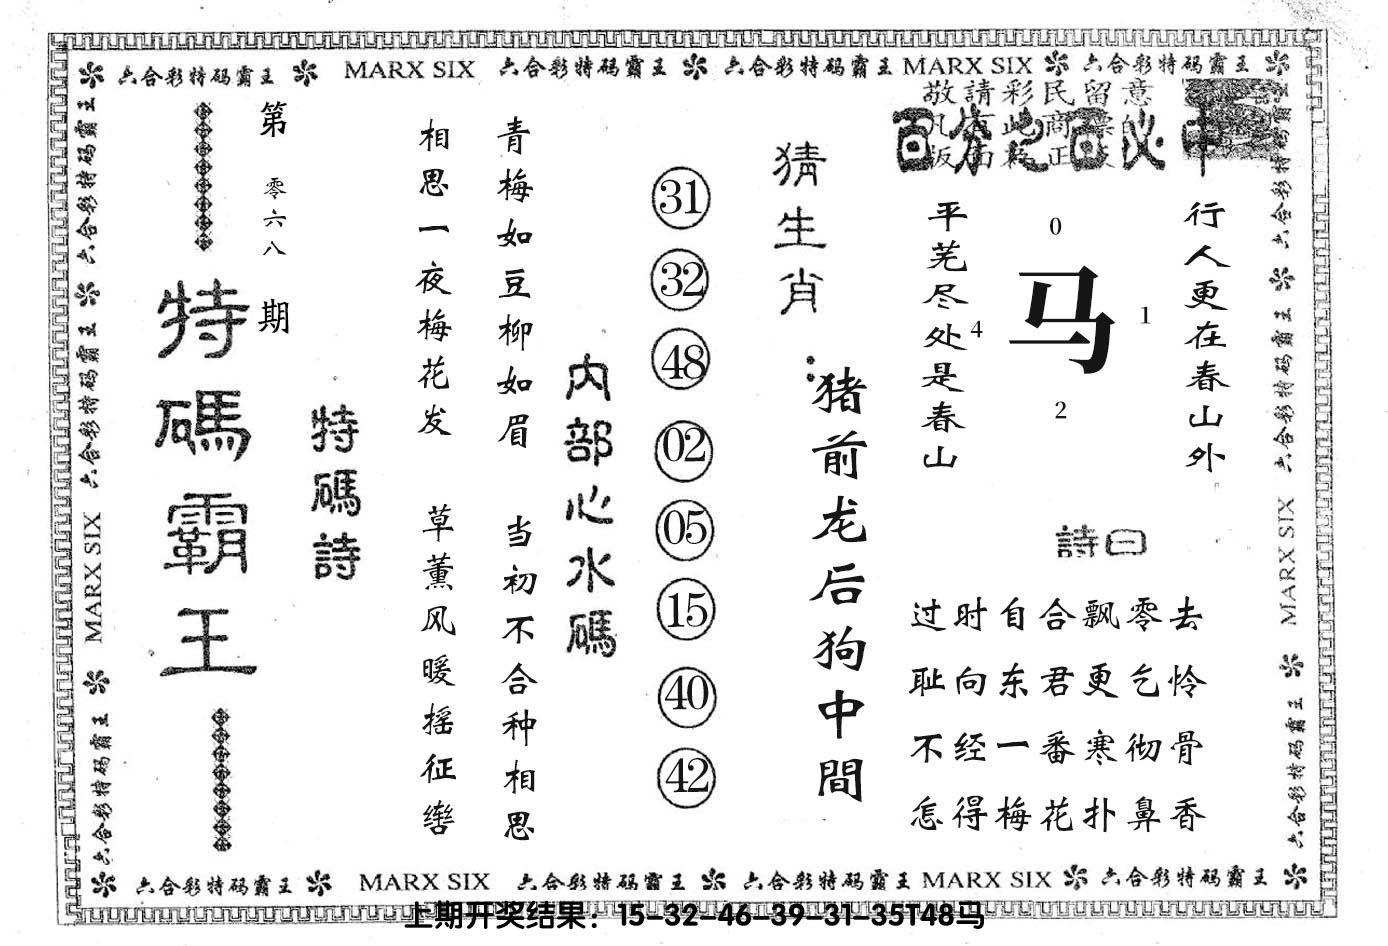 六合彩特码霸王 MARX SIX 六合彩特码霸王 六合彩特码霸王 MARX SIX 六合彩特码霸王
敬請彩民留意
百分之百必中
行人更在春山外
平芜尽处是春山
马
0
1
2
4
詩曰
过时自合飘零去
耻向东君更乞怜
不经一番寒彻骨
怎得梅花扑鼻香
猜生肖：
猪前龙后狗中間
31
32
48
02
05
15
40
42
内部心水碼
青梅如豆柳如眉
当初不合种相思
相思一夜梅花发
草薰风暖摇征辔
特碼詩
第零六八期
特碼霸王
六合彩特码霸王 六合彩特码霸王 MARX SIX 六合彩特码霸王
六合彩特码霸王 六合彩特码霸王 MARX SIX 六合彩特码霸王
六合彩特码霸王 MARX SIX 六合彩特码霸王 六合彩特码霸王 MARX SIX 六合彩特码霸王
上期开奖结果：15-32-46-39-31-35T48马